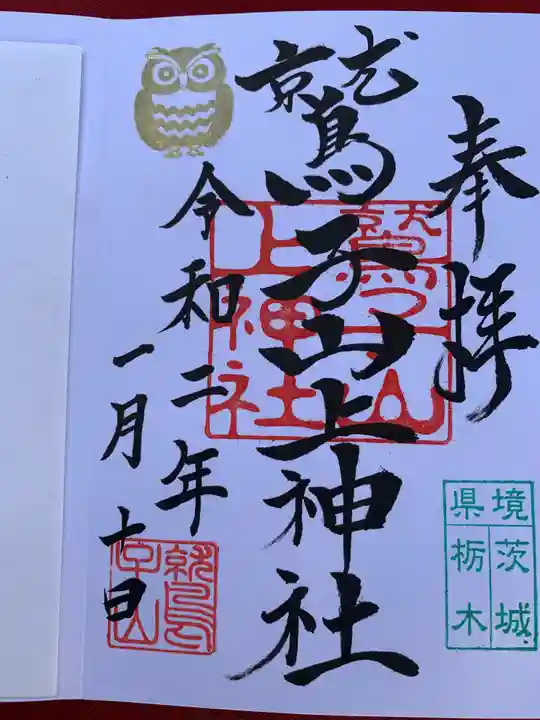 奉拝
鷲子山上神社
令和二年
一月十日
鷲子山
上神社
鷲子山
境 茨城
県 栃木